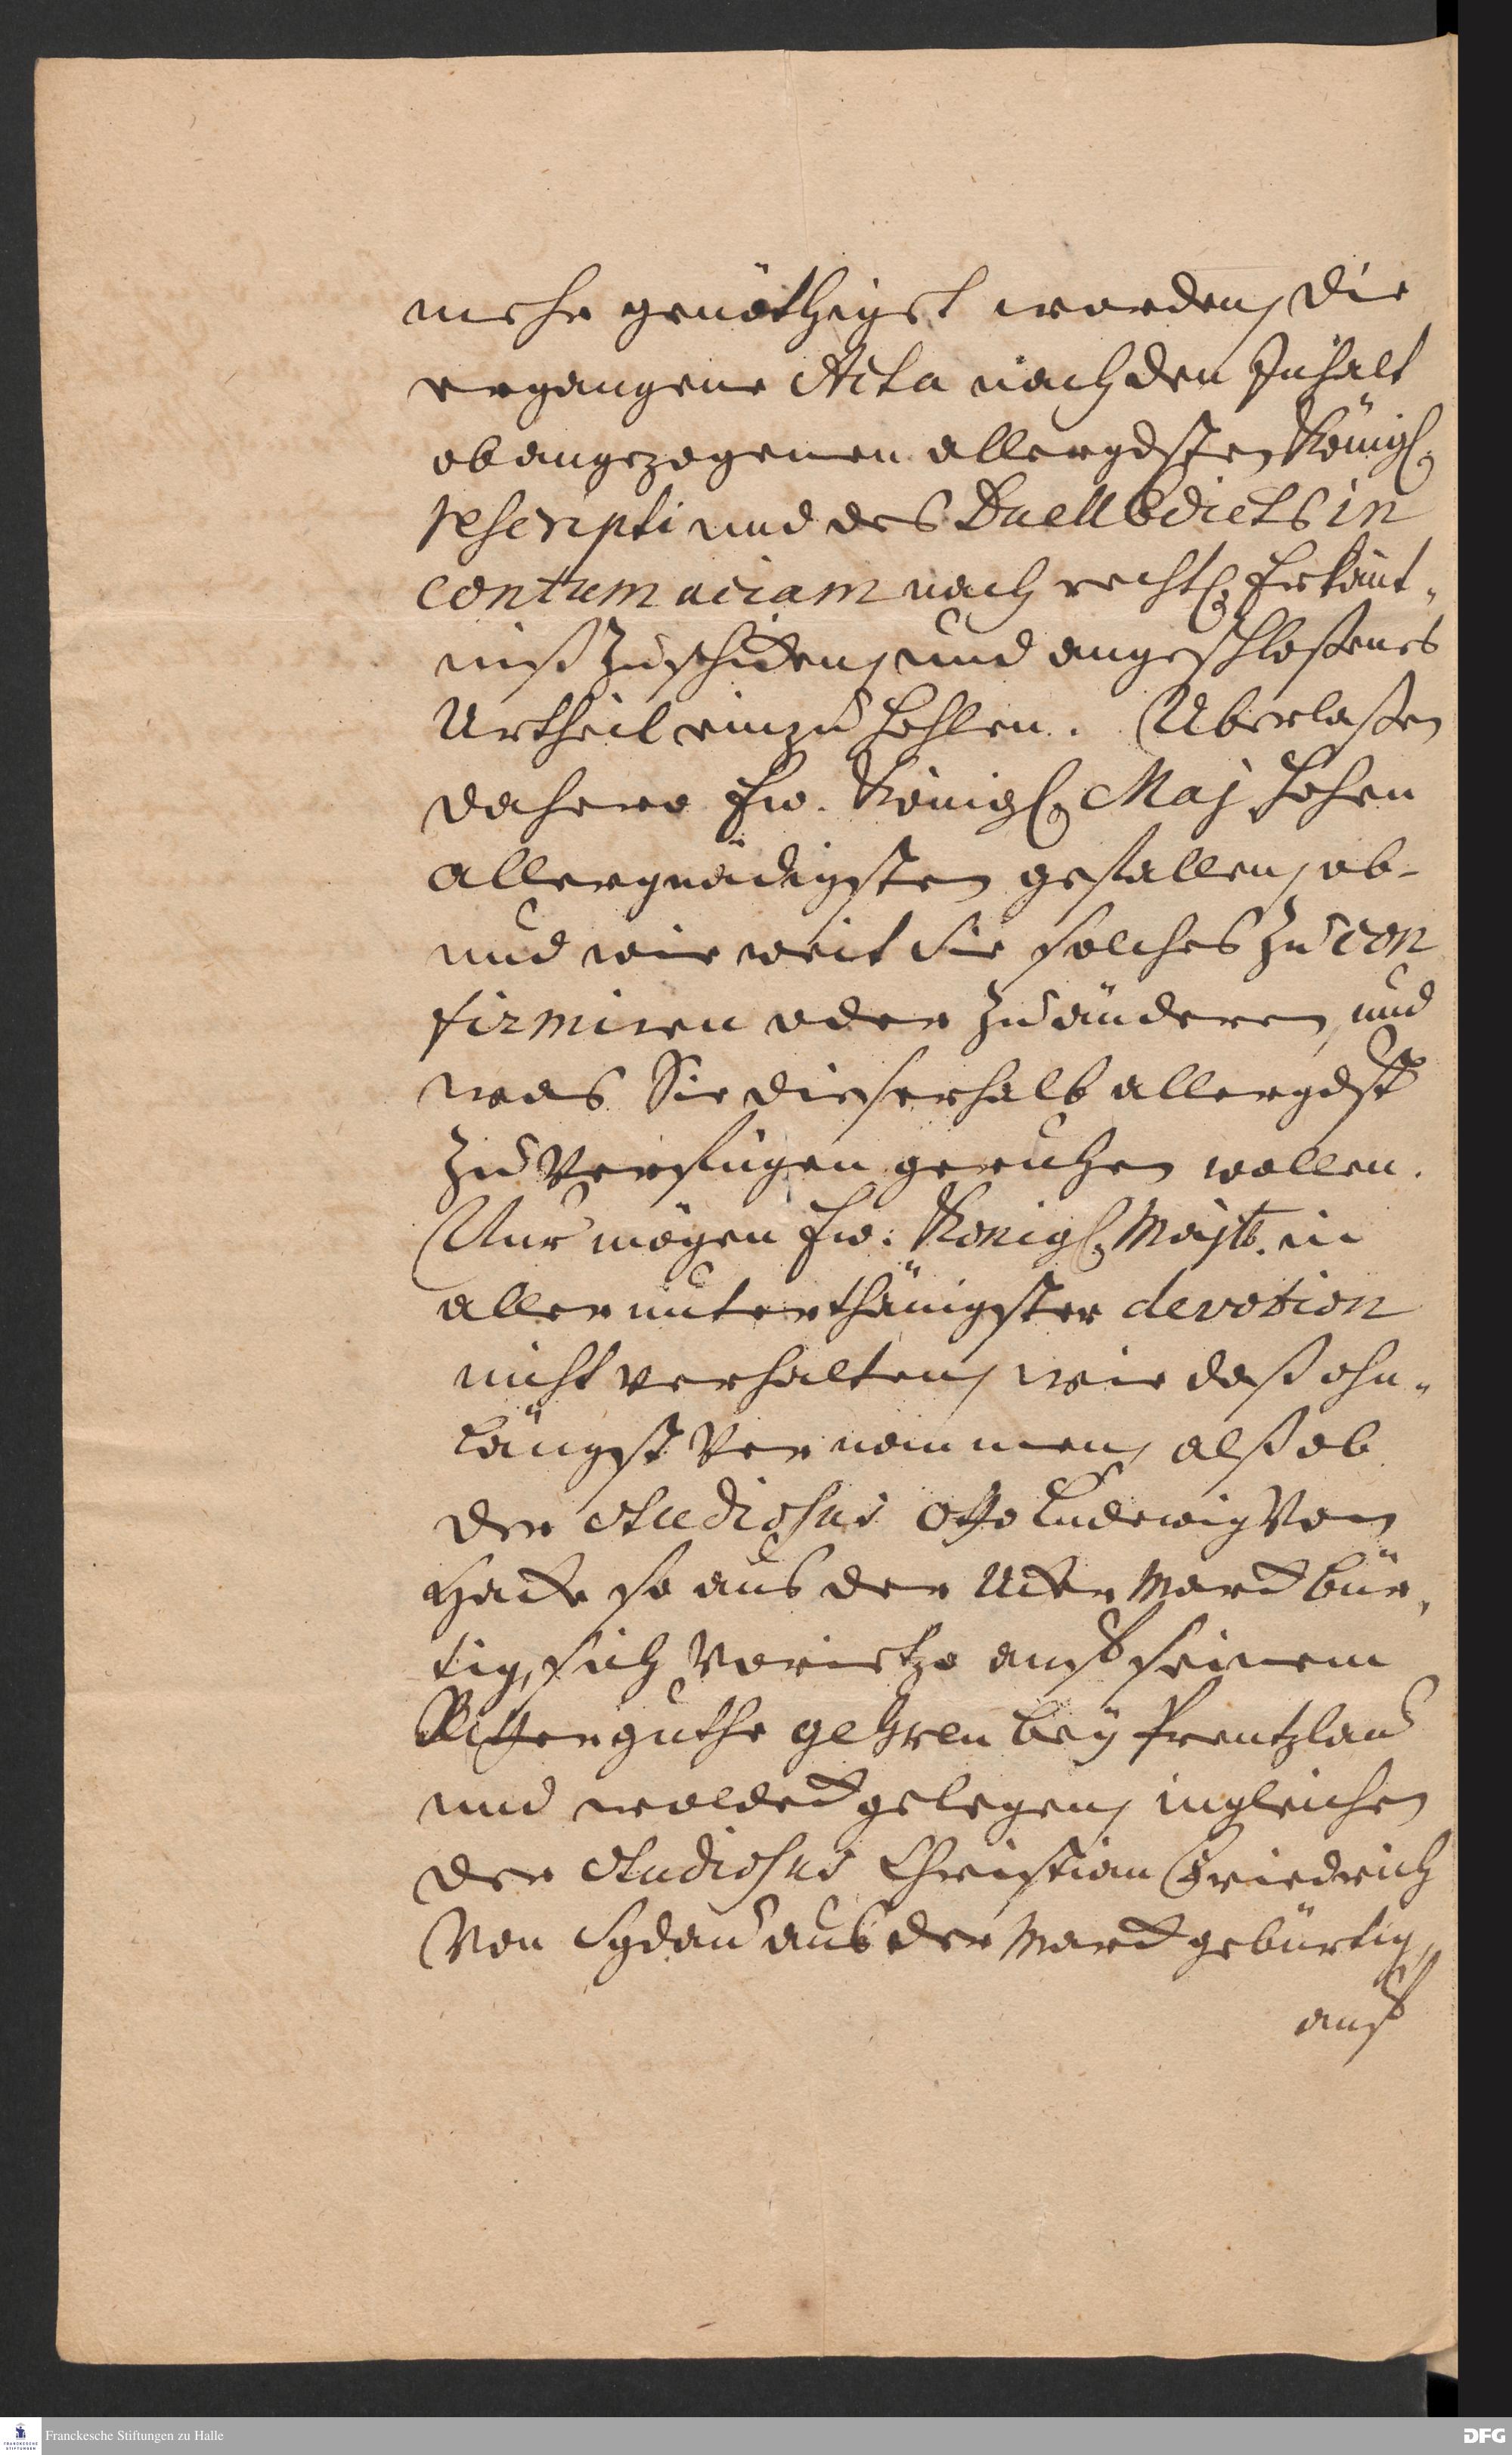 mehr genöthiget worden, die
ergangene Acta nach den Inhalt
obangezogenen allergdsten Königl.
rescripti und des Duell Edicts in
contumaciam nach rechtl. Erkänt-
niß zuschicken, und angeschloßenes
Urtheil einzuhohlen. Uberlaßen
dahero Ew. Königl. Maj hohen
allergnädigsten gefallen, ob-
und wie weit Sie solches zu con
firmiren oder zu änderen, und
was Sie dieserhalb allergdst
zu Verfügen geruhen wollen.
Nur mögen Ew: Königl. Majtt. in
aller unterthänigster devotion
nicht verhalten, wie daß ohn-
längst Vernommen, alß ob
der Studiosus Otto Ludewig Von
Hacke so aus der Ucker Marck bür-
tig, sich Vorietzo auff seinem
Ritterguthe Gehren bey Prentzlau
und woldeck gelegen, ingleichen
der Studiosus Christian Friedrich
Von Sydau aus der Marck gebürtig,
auff
Franckesche Stiftungen zu Halle
DFG